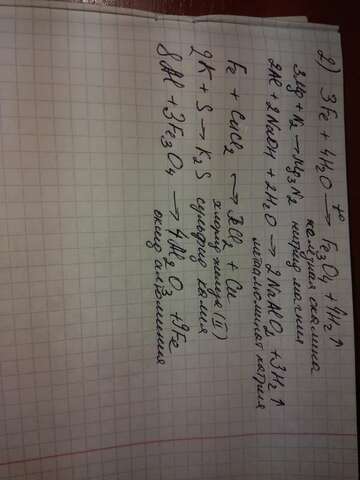 2) 3Fe + 4H2O →t° Fe3O4 + 4H2↑
железная окалина
3Mg + N2 → Mg3N2
нитрид магния
2Al + 2NaOH + 2H2O → 2NaAlO2 + 3H2↑
метаалюминат натрия
Fe + CuCl2 → FeCl2 + Cu
хлорид железа (II)
2K + S → K2S
сульфид калия
8Al + 3Fe3O4 → 4Al2O3 + 9Fe
оксид алюминия